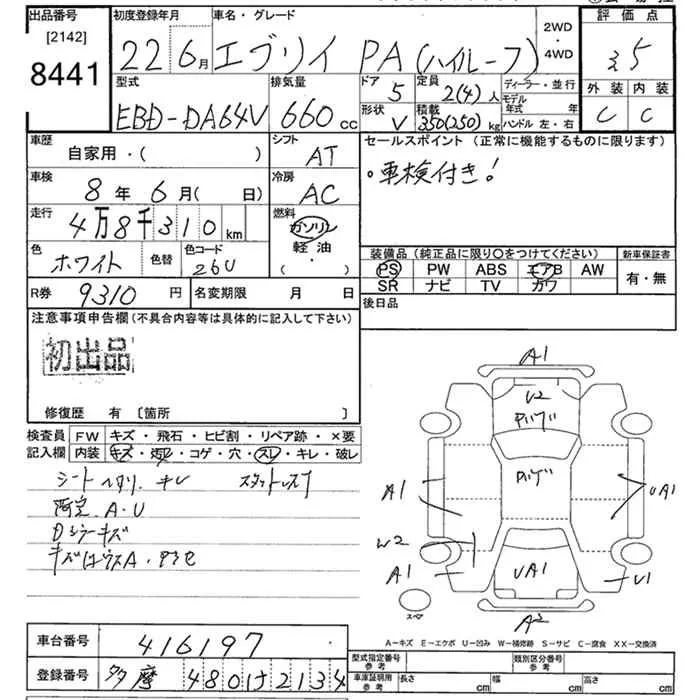 出品番号 初度登録年月 車名・グレード 2WD・4WD 評価点
[2142]
8441
22 6月 エブリイ PA(ハイルーフ) 5
型式 排気量 ドア 定員 ディーラー・並行 外装 内装
EBD-DA64V 660cc 5 2(4)人 モデル年式 年 C C
形状 積載 ハンドル 左・右
V 350(250)kg
車歴 シフト セールスポイント(正常に機能するものに限ります)
自家用・( ) AT ・車検付き!
車検 冷房
8年 6月( 日) AC
走行 燃料
4万8千310km ガソリン
軽油
・( )
色 色替 色コード 装備品(純正品に限り○をつけてください) 新車保証書
ホワイト 26U PS PW ABS エアB AW 有・無
SR ナビ TV カワ
R券 9310円 名変期限 月 日 後日品
注意事項申告欄(不具合内容等は具体的に記入して下さい)
初出品
修復歴 有 〔箇所 〕
検査員 FW キズ・飛石・ヒビ割・リペア跡・×要
記入欄 内装 キズ・汚レ・コゲ・穴・スレ・キレ・破レ
シート ヘタリ. キレ
A・U
キズ
A1
U2
A1
UA1
W2
A1
UA1
U1
スペア
A2
A-キズ E-エクボ U-凹み W-補修跡 S-サビ C-腐食 XX-交換済
車台番号 416197
型式指定番号 参考 類別区分番号 参考
登録番号 多摩 480 け 2134
車庫証明用 参考 長さ cm 幅 cm 高さ cm